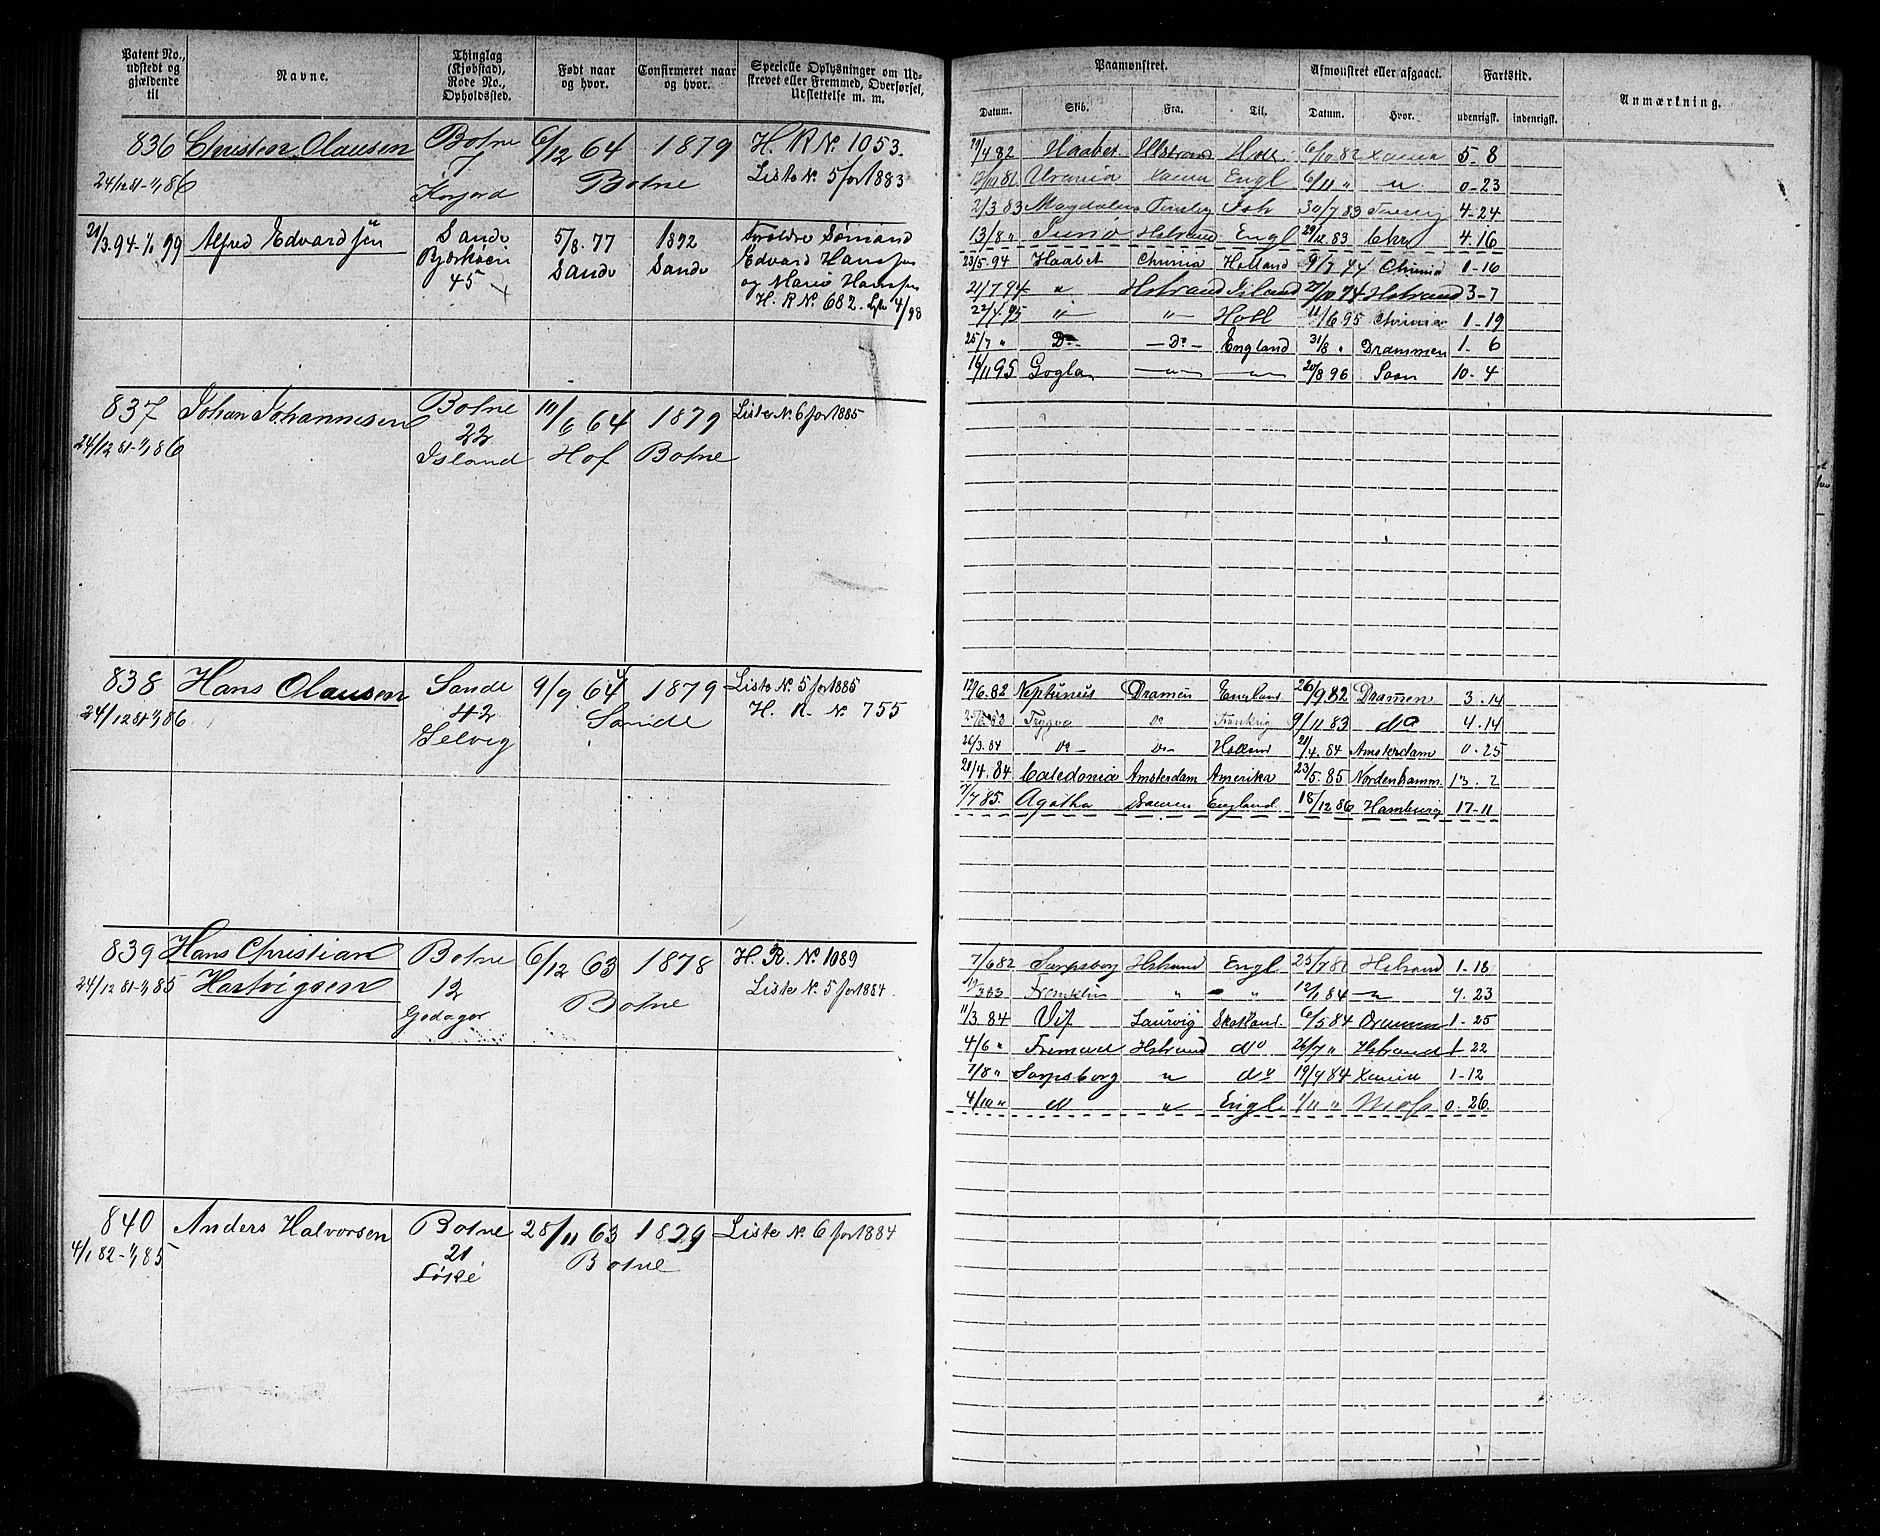 Patent No., udstedt og gjældende til
Navne.
Thinglag (Kjøbstad), Rode No., Opholdssted.
Født naar og hvor.
Confirmeret naar og hvor.
Specielle Oplysninger om Udskrevet eller Fremmed, Overførsel, Udslettelse m. m.
836 Christen Olausen Botne 6/12 64 1879 H. R No. 1053.
24/12 81-1/1 86 7 Botne Liste No. 5 for 1883
21/3.94-1/1 99 Alfred Edvardsen Sande 5/8.77 1892 Forældre Sømand
Bjerkøen Sande Sande Edvard Hansen
45 og Marie Hansen
H. R No. 682. Liste 4/98
837 Johan Johannesen Botne 10/6 64 1879 Liste No. 6 for 1885
24/12 81-1/1 86 22
Island Hof Botne
838 Hans Olausen Sande 9/9. 64 1879 Liste No. 5 for 1885
24/12 81-1/1 86 42 Sande H. R. No. 755
Selvig
839 Hans Christian Botne 6/12 63 1878 H. R. No. 1089
24/12 81-1/1 85 Hartvigsen 12 Botne Liste No. 5 for 1884.
Godager
840 Anders Halvorsen Botne 28/11 63 1829 Liste No. 6 for 1884
4/1 82-1/1 85 21 Botne
Paamønstret.
Afmønstret eller afgaaet.
Fartstid.
Anmærkning.
Datum. Skib. Fra. Til. Datum. Hvor. udenrigsk. indenrigsk.
29/4 82 Haabet Holl 6/10 82 Xania 5-8
Urania Xania Engl 6/11 " " 0-23
2/3 83 Magdalena 30/7 83 4-24
13/8 " Juno Hstrand Engl 29/12.83 Chr 4.16
23/5.94 Haabet Chrnia Holland 9/7 94 Chrnia 1-16
21/7 94 " Hstrand Island 27/10 94 Hstrand 3-7
22/4 95 " " Holl 11/6 95 Chrnia 1-19
25/7 " Do Do England 31/8 " Drammen 1-6
16/11 95 Gogla " " 20/8 96 Soon 10-4
12/6.82 Neptunus Dramen England 26/9 82 Dramen 3.14
Trygve Do Frankrig 9/11 83 do 4.14
26/3.84 Do Do Holland 21/4.84 Amsterdam 0.25
21/4.84 Caledonia Amsterdam Amerika 23/5.85 Nordenhamm. 13.2
7/7 85. Agatha Dramen England. 18/12 86 Hamburg 17-11
7/6 82 Sarpsborg Hstrand Engl 25/7 82 Hstrand 1-18
19/3 83 Franklin " " 12/1 84 " 9.23
11/3 84 Vif Laurvig Skotland. 6/5 84 Drammen 1-25
4/6 " Fremad Hstrand do 26/7 " Hstrand 1 22
7/8 " Sarpsborg " do 19/9 84 Xania 1-12
4/10 " do " Engl 1/11 " Moss 0.26.